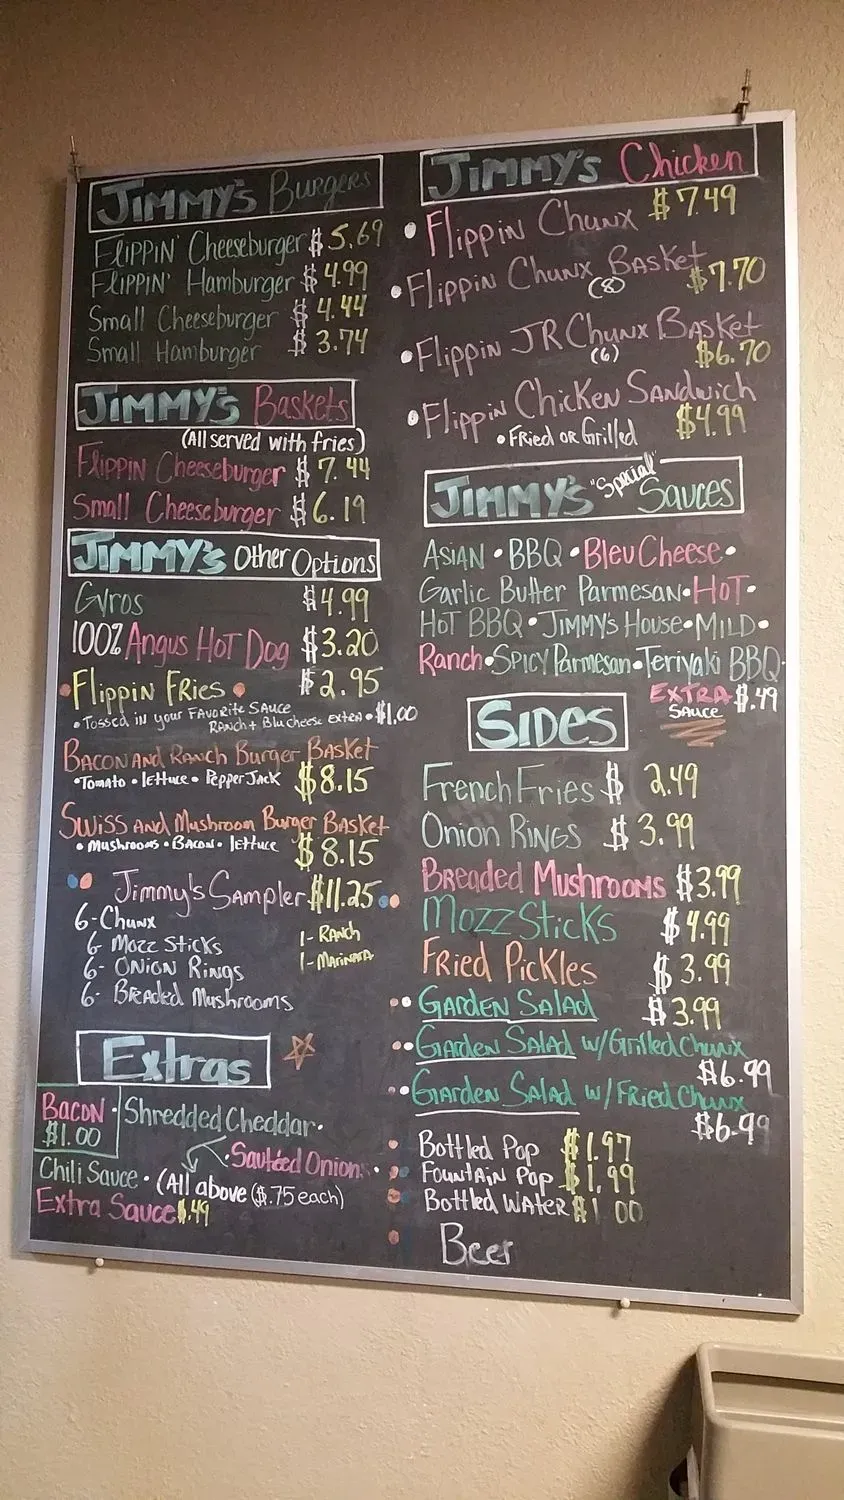 JIMMY's Burgers
FLIPPIN' Cheeseburger $5.69
FLIPPIN' Hamburger $4.99
Small Cheeseburger $4.44
Small Hamburger $3.74
JIMMY's Baskets
(All served with fries)
Flippin Cheeseburger $7.44
Small Cheeseburger $6.19
JIMMY's Other Options
Gyros $4.99
100% Angus Hot Dog $3.20
• Flippin Fries • $2.95
• Tossed in your Favorite Sauce
Ranch + Blu cheese extra • $1.00
Bacon and Ranch Burger Basket
• Tomato • lettuce • Pepper Jack $8.15
Swiss and Mushroom Burger Basket
• Mushrooms • Bacon • lettuce $8.15
Jimmy's Sampler $11.25
6-Chunx
6 Mozz Sticks
6- Onion Rings
6- Breaded Mushrooms
1- Ranch
1- Marinara
Extras
Bacon
$1.00
• Shredded Cheddar •
• Sautéed Onions •
Chili Sauce • (All above ($.75 each)
Extra Sauce $.49
JIMMY's Chicken
• Flippin Chunx $7.49
• Flippin Chunx Basket
(8) $7.70
• Flippin JR Chunx Basket
(6) $6.70
• Flippin Chicken Sandwich
• Fried or Grilled $4.99
JIMMY's "Special" Sauces
Asian • BBQ • Bleu Cheese •
Garlic Butter Parmesan • Hot •
Hot BBQ • Jimmy's House • Mild •
Ranch • Spicy Parmesan • Teriyaki BBQ •
Extra $.49
Sauce
Sides
French Fries $2.49
Onion Rings $3.99
Breaded Mushrooms $3.99
Mozz Sticks $4.99
Fried Pickles $3.99
Garden Salad $3.99
Garden Salad w/Grilled Chunx
$6.99
Garden Salad w/Fried Chunx
$6.99
Bottled Pop $1.97
Fountain Pop $1.99
Bottled Water $1.00
Beer